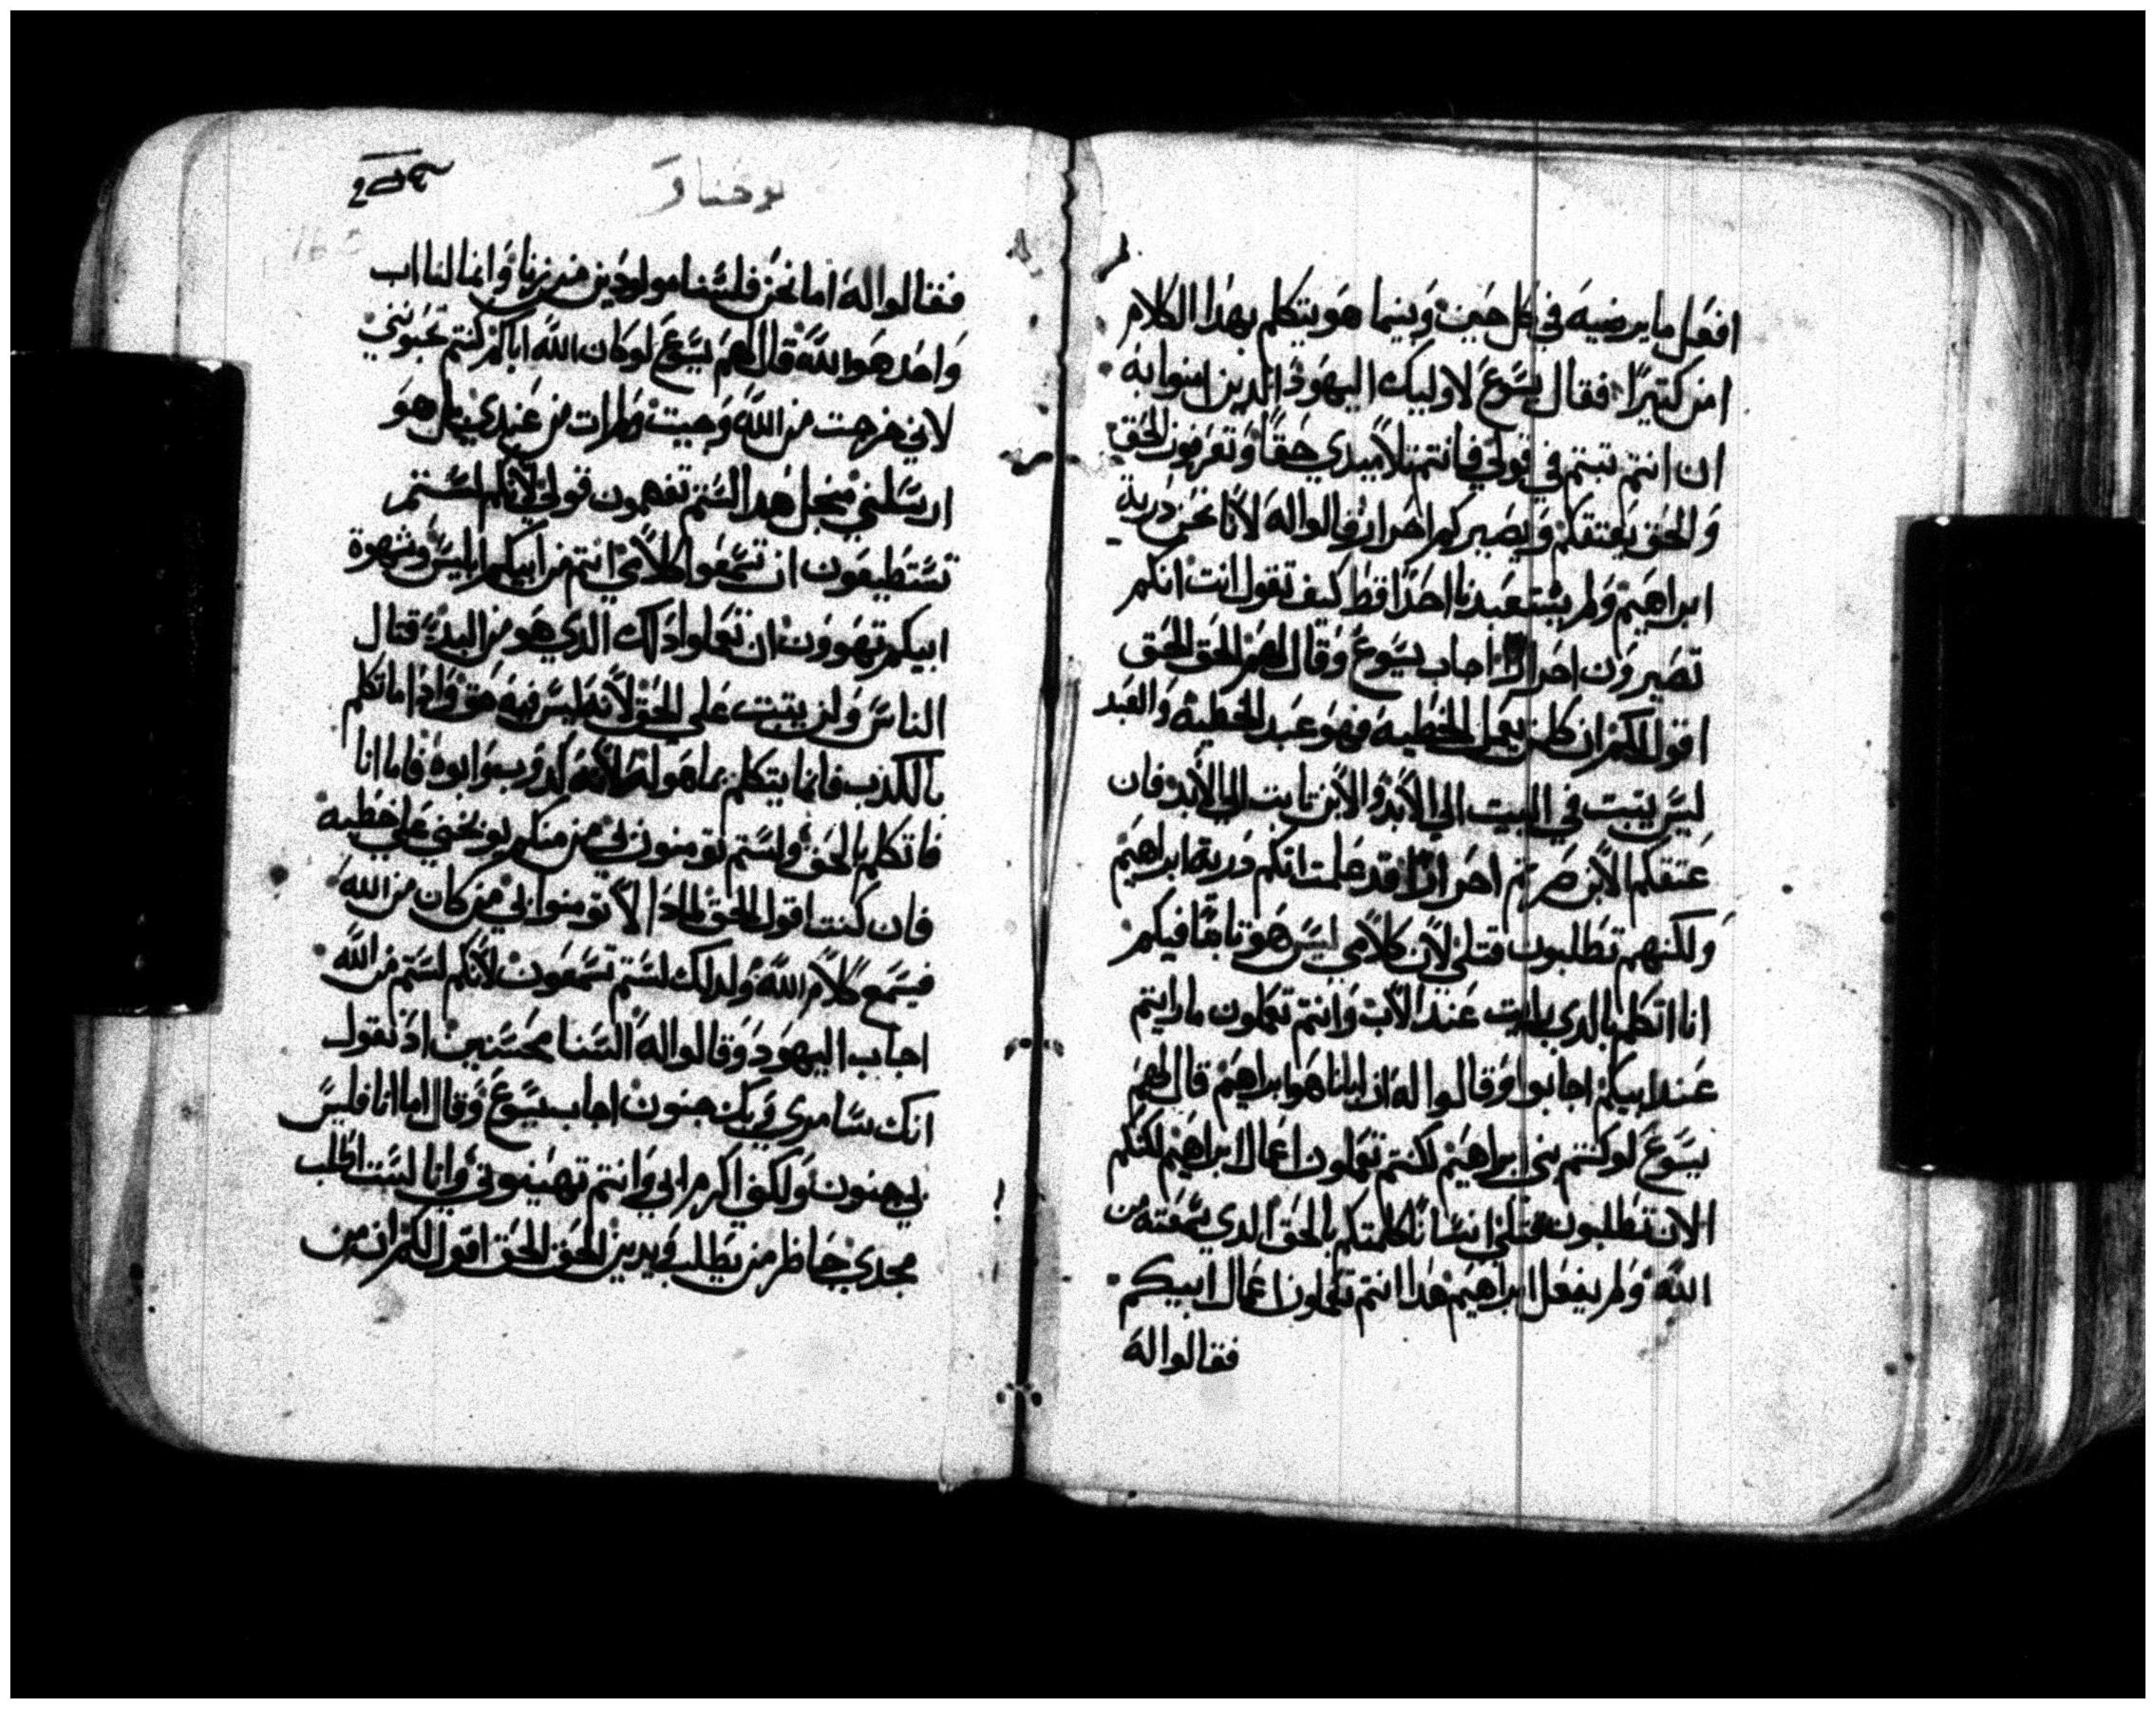 افعل ما يرضيه في كل حين وبينما هو يتكلم بهدا الكلام
امن كتيرا فقال يسوع لاوليك اليهود الدين امنوا به
ان انتم تبتم في قولي فانتم تلاميدي حقا وتعرفون الحق
والحق يعتقكم ويصيركم احرار قالوا له لانا نحن درية
ابراهيم ولم يستعبدنا احدا قط كيف تقول انت انكم
تصيرون احرارا اجاب يسوع وقال لهم الحق الحق
اقول لكم ان كل من يعمل الخطيه فهو عبد للخطيه والعبد
ليس يتبت في البيت الي الابد والابن تابت الي الابد فان
عتقكم الابن صرتم احرارا قد علمت انكم درية ابراهيم
ولكنهم تطلبون قتلي لان كلامي ليس هو تابتا فيكم
انا اتكلم بالدي رايت عند الاب وانتم تعملون ما رايتم
عند ابيكم اجابوا وقالوا له ان ابانا هو ابراهيم قال لهم
يسوع لو كنتم بني ابراهيم لكنتم تعملون اعمال ابراهيم لكنكم
الان تطلبون قتلي انسانا كلمتكم بالحق الدي سمعته من
الله ولم يفعل ابراهيم هدا انتم تعملون اعمال ابيكم
فقالوا له
يوحنا
فقالوا له اما نحن فلسنا مولودين من زنا وانما لنا اب
واحد هو الله قال لهم يسوع لو كان الله اباكم كنتم تحبوني
لاني خرجت من الله وجيت ولم ات من عندي بل هو
ارسلني منجل هدا لستم تفهمون قولي لانكم لستم
تستطيعون ان تسمعوا كلامي انتم من ابيكم ابليس وشهوة
ابيكم تهوون ان تعملوا دلك الدي هو من البدء قتال
الناس ولن يتبت علي الحق لانه ليس فيه حق وادا ما تكلم
بالكذب فانما يتكلم بما هو له لانه كدوب هو وابوه فاما انا
فاتكلم بالحق ولستم تومنون بي من منكم يوبخني علي خطيه
فان كنت اقول الحق لمادا لا تومنوا بي من كان من الله
فيسمع كلام الله ولدلك لستم تسمعون لانكم لستم من الله
اجاب اليهود وقالوا له السنا محسنين اذ نقول
انك سامري وبك جنون اجاب يسوع وقال اما انا فليس
بي جنون ولكني اكرم ابي وانتم تهينوني وانا لست اطلب
مجدي حاظر من يطلب ويدين الحق الحق اقول لكم ان من